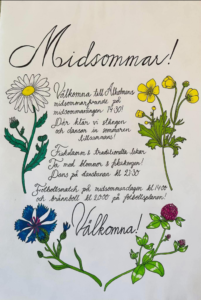 Midsommar!
Välkomna till
midsommarfirande på
midsommardagen 14:30!
Där klär vi stången
och dansar in sommaren
tillsammans!
Fiskdamm & traditionella lekar
Ta med blommor & fikakorgar!
Dans på dansbanan kl 21.30
Fotbollsmatch på midsommardagen kl 14:00
och brännboll kl 20:00 på fotbollsplanen!
Välkomna!